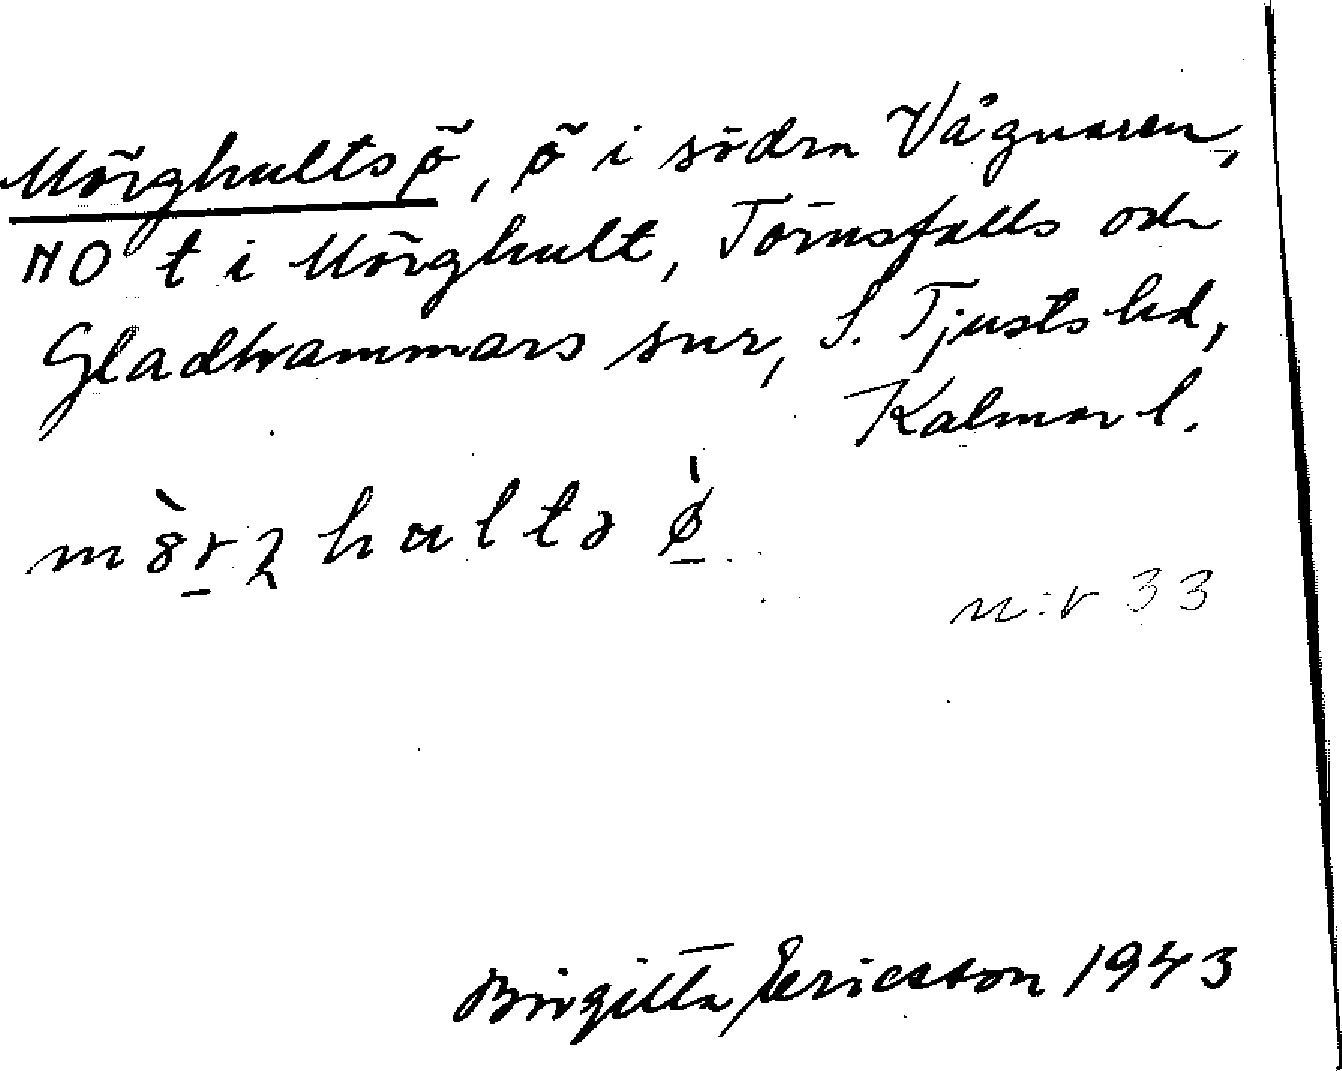 Mörghultsö, ö i södra Vågnaren,
NO t i Mörghult, Törnsfalls och
Gladhammars snr, S. Tjusts hd,
Kalmar l.
n:r 33
Birgitta Ericsson 1943